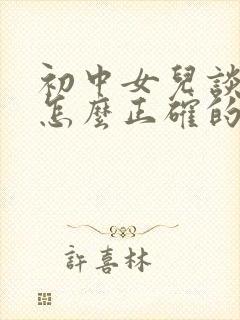 初中女兒談
怎麼正確的
許喜林